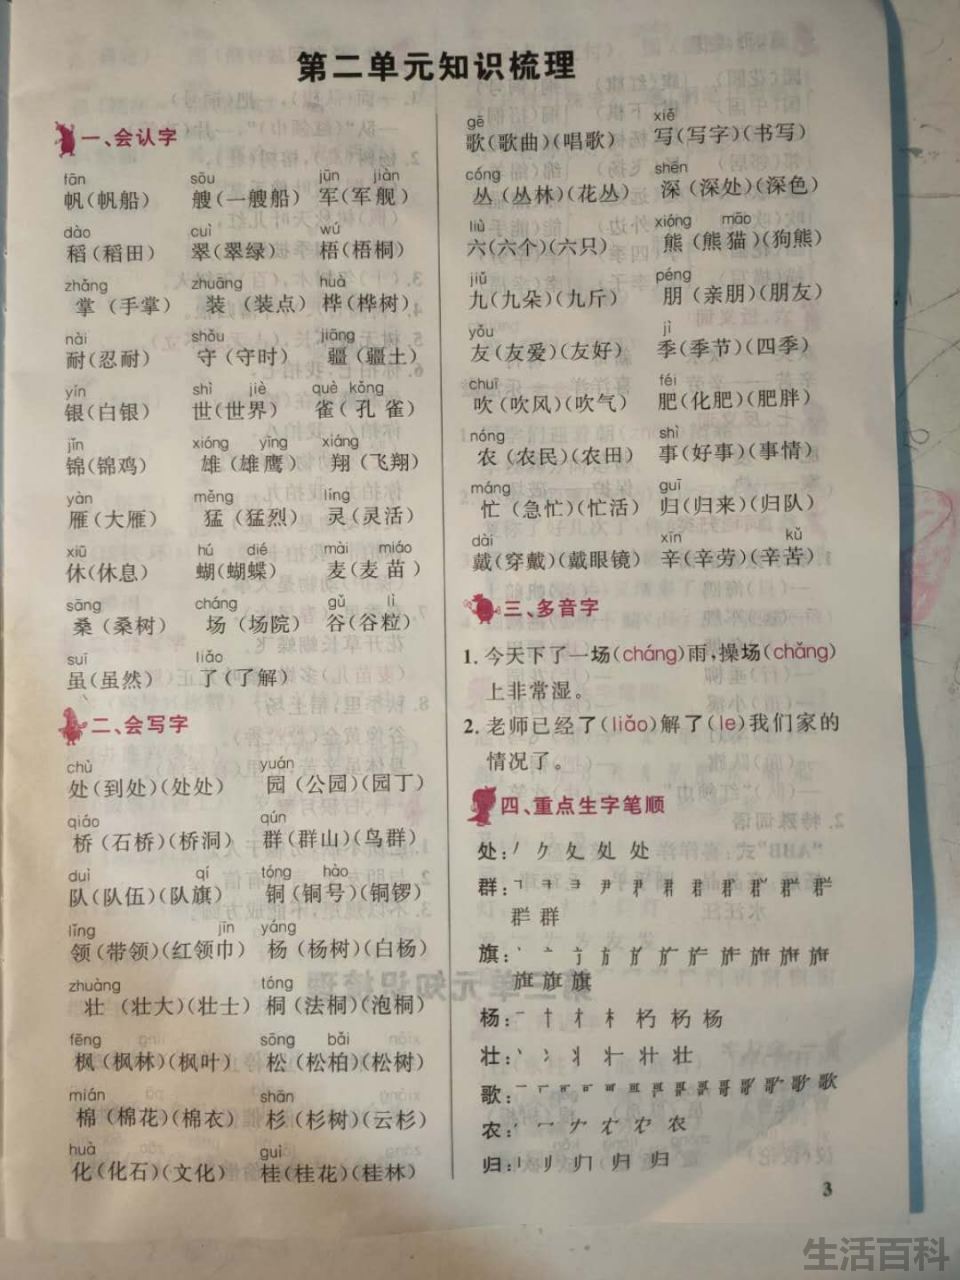 第二单元知识梳理
一、会认字
fān sōu jūn jiàn
帆(帆船) 艘(一艘船) 军(军舰)
dào cuì wú
稻(稻田) 翠(翠绿) 梧(梧桐)
zhǎng zhuāng huà
掌(手掌) 装(装点) 桦(桦树)
nài shǒu jiāng
耐(忍耐) 守(守时) 疆(疆土)
yín shì jiè què kǒng
银(白银) 世(世界) 雀(孔雀)
jǐn xióng yīng xiáng
锦(锦鸡) 雄(雄鹰) 翔(飞翔)
yàn měng líng
雁(大雁) 猛(猛烈) 灵(灵活)
xiū hú dié mài miáo
休(休息) 蝴(蝴蝶) 麦(麦苗)
sāng cháng gǔ lì
桑(桑树) 场(场院) 谷(谷粒)
suī liǎo
虽(虽然) 了(了解)
二、会写字
chù yuán
处(到处)(处处) 园(公园)(园丁)
qiáo qún
桥(石桥)(桥洞) 群(群山)(鸟群)
duì qí tóng hào
队(队伍)(队旗) 铜(铜号)(铜锣)
lǐng jīn yáng
领(带领)(红领巾) 杨(杨树)(白杨)
zhuàng tóng
壮(壮大)(壮士) 桐(法桐)(泡桐)
fēng sōng bǎi
枫(枫林)(枫叶) 松(松柏)(松树)
mián shān
棉(棉花)(棉衣) 杉(杉树)(云杉)
huà guì
化(化石)(文化) 桂(桂花)(桂林)
gē xiě
歌(歌曲)(唱歌) 写(写字)(书写)
cóng shēn
丛(丛林)(花丛) 深(深处)(深色)
liù xióng māo
六(六个)(六只) 熊(熊猫)(狗熊)
jiǔ péng
九(九朵)(九斤) 朋(亲朋)(朋友)
yǒu jì
友(友爱)(友好) 季(季节)(四季)
chuī féi
吹(吹风)(吹气) 肥(化肥)(肥胖)
nóng shì
农(农民)(农田) 事(好事)(事情)
máng guī
忙(急忙)(忙活) 归(归来)(归队)
dài xīn kǔ
戴(穿戴)(戴眼镜) 辛(辛劳)(辛苦)
三、多音字
1. 今天下了一场(cháng)雨,操场(chǎng)
上非常湿。
2. 老师已经了(liǎo)解了(le)我们家的
情况了。
四、重点生字笔顺
处: 处
群:
群
旗:
旗
杨: 杨
壮: 壮
歌: 歌
农: 农
归: 归
3
生活百科